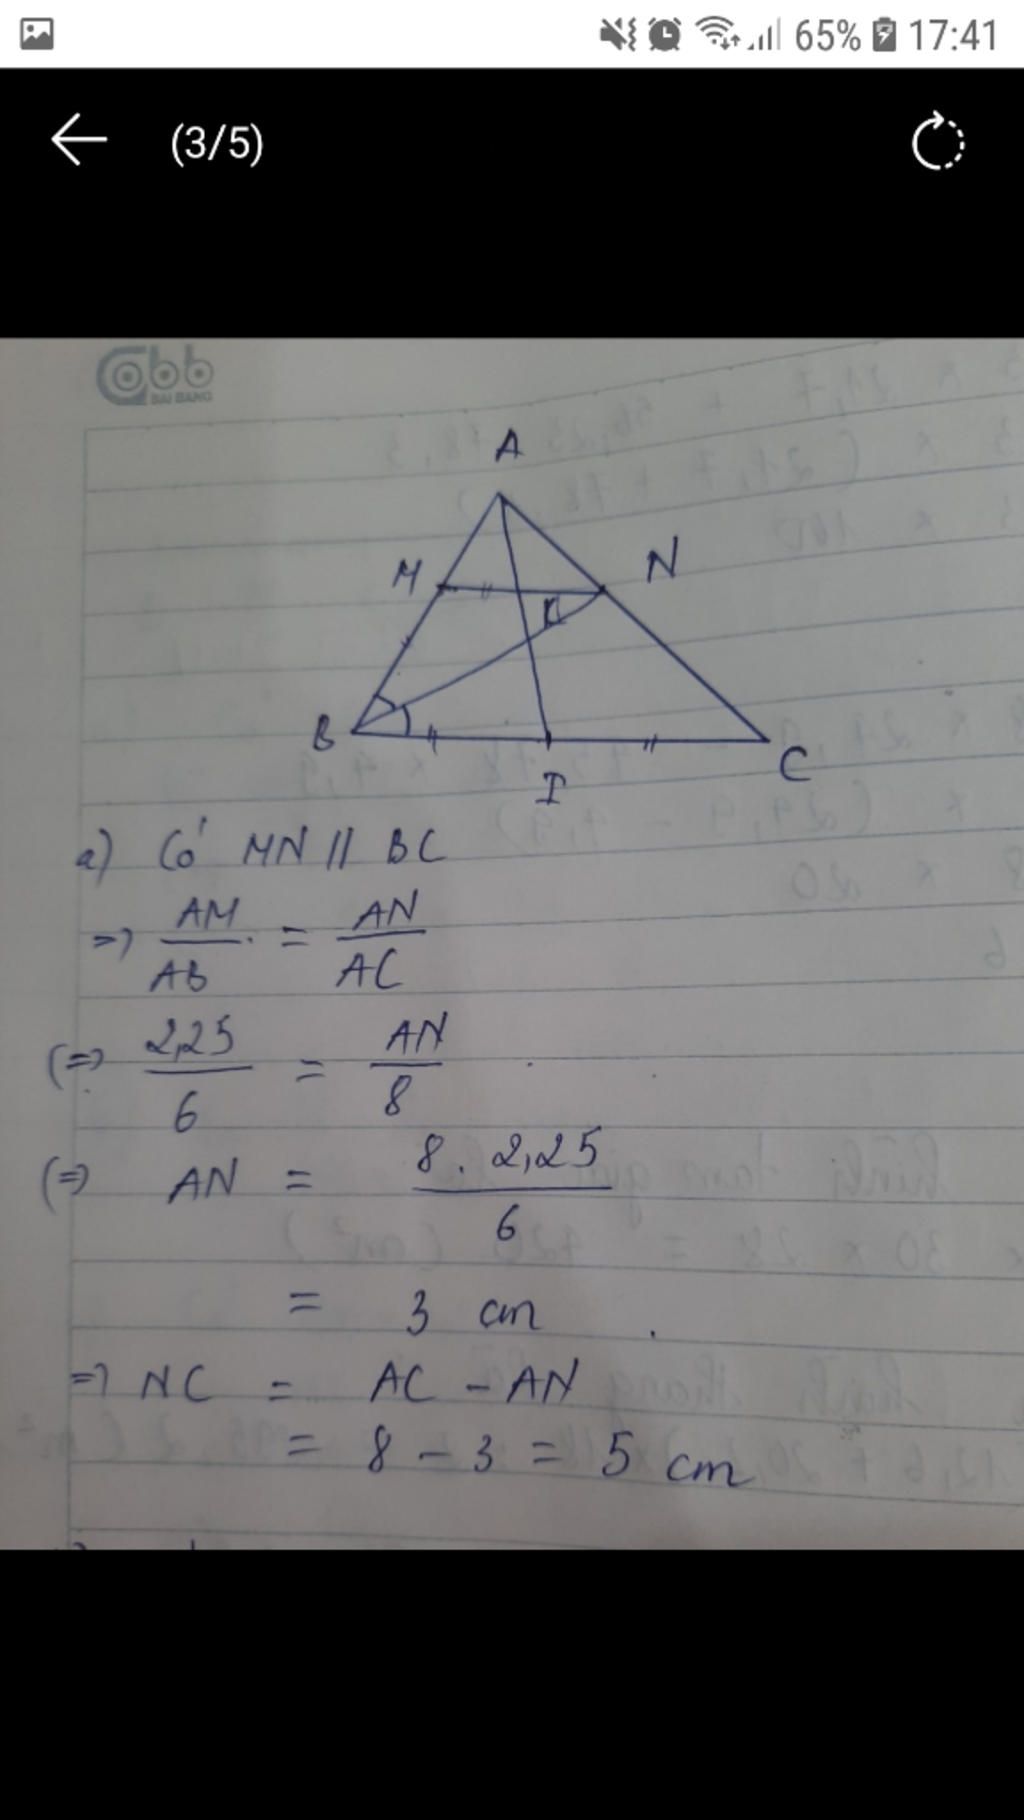 65% 17:41
(3/5)
abb
BAI BANG
A
M
N
K
B
I
C
a) Có MN // BC
=> AM/AB = AN/AC
(=) 2,25/6 = AN/8
(=) AN = 8.2,25/6
= 3 cm
=> NC = AC - AN
= 8 - 3 = 5 cm